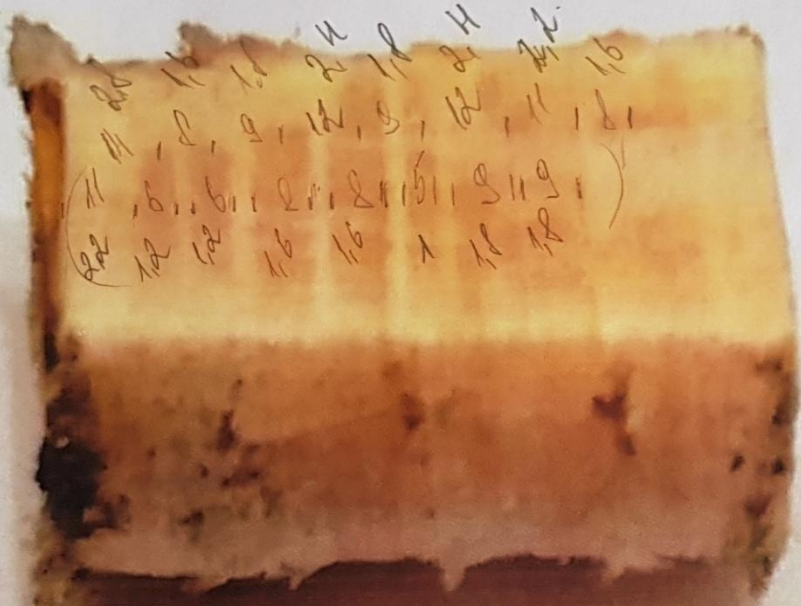 2,8 1,6 1,8 2,4 1,8 2,4 2,2 1,6
14, 8, 9, 12, 9, 12, 11, 8,
(11, 6, 6, 8, 8, 5, 9, 9,)
2,2 1,2 1,2 1,6 1,6 1 1,8 1,8